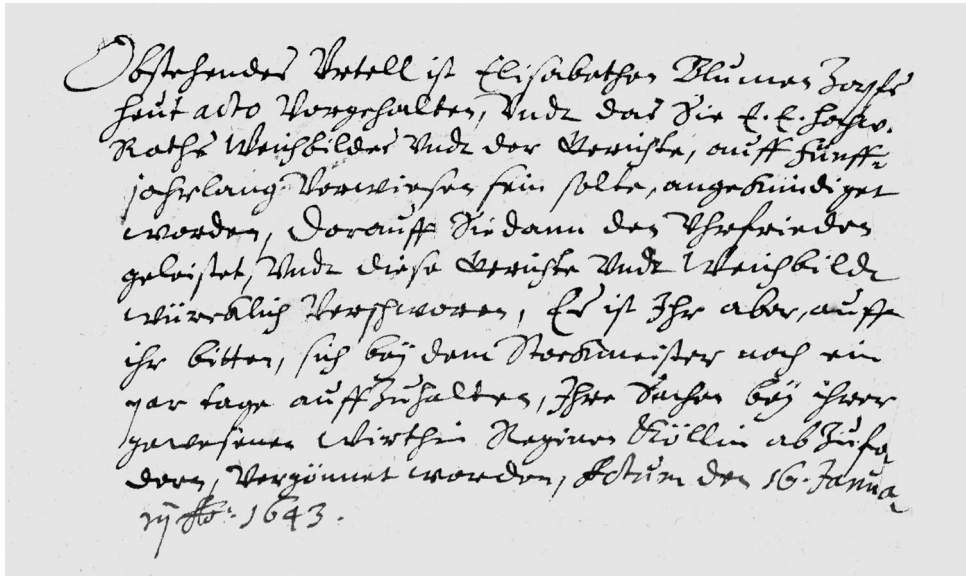 Obstehendes Vrtell ist Elisabethen Blumen Zopfs
heut acto Vorgehalten, Vndt das Sie E. E. Hochw.
Raths Weichbildes Vndt der Gerichte, auff fünff
jahrlang Vorwiesen sein solte, angekündiget
worden, Dorauff Sie dann den Vhrfrieden
geleistet, Vndt diese Gerichte Vndt Weichbildt
würcklich Verschworen, Es ist Ihr aber, auff
ihr bitten, sich beÿ dem Stockmeister noch ein
par tage auff Zuhalten, Ihre Sachen beÿ ihrer
gewesenen Wirthin Reginen Köllin ab Zufo
dern, Vergönnet worden, Actum den 16. Janua
rij Ao: 1643.